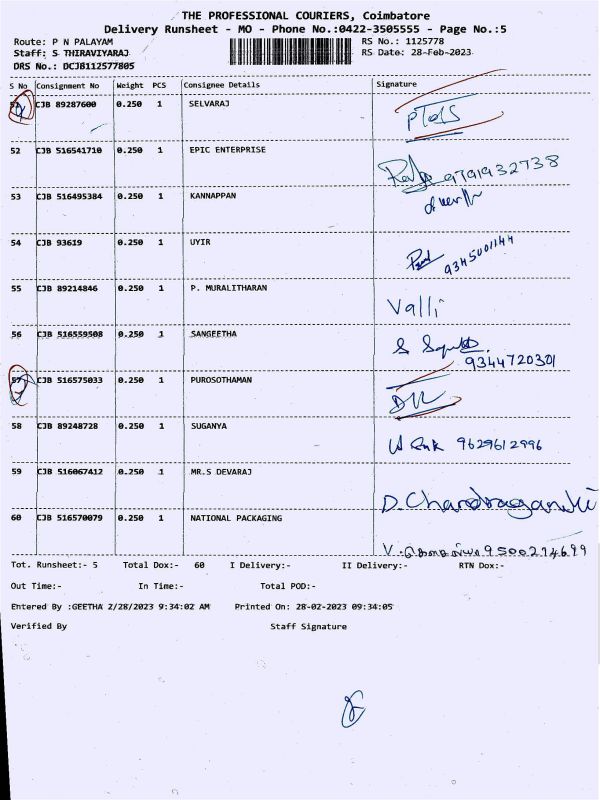 THE PROFESSIONAL COURIERS, Coimbatore
Delivery Runsheet - MO - Phone No.:0422-3505555 - Page No.:5
Route: P N PALAYAM RS No.: 1125778
Staff: S THIRAVIYARAJ RS Date: 28-Feb-2023
DRS No.: DCJB112577805
S No Consignment No Weight PCS Consignee Details Signature
51 CJB 89287600 0.250 1 SELVARAJ
52 CJB 516541710 0.250 1 EPIC ENTERPRISE 9791932738
53 CJB 516495384 0.250 1 KANNAPPAN
54 CJB 93619 0.250 1 UYIR 9345001144
55 CJB 89214846 0.250 1 P. MURALITHARAN Valli
56 CJB 516559508 0.250 1 SANGEETHA
9344720301
57 CJB 516575033 0.250 1 PUROSOTHAMAN
58 CJB 89248728 0.250 1 SUGANYA 9629612996
59 CJB 516067412 0.250 1 MR.S DEVARAJ
60 CJB 516570079 0.250 1 NATIONAL PACKAGING
Tot. Runsheet:- 5 Total Dox:- 60 I Delivery:- II Delivery:- RTN Dox:-
Out Time:- In Time:- Total POD:-
Entered By :GEETHA 2/28/2023 9:34:02 AM Printed On: 28-02-2023 09:34:05
Verified By Staff Signature